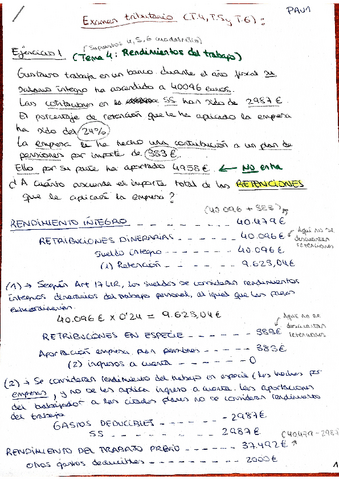 PAU1
Examen tributario (T.4, T.5 y T.6):
(Supuestos 4, 5, 6 cuadernillo)
Ejercicio 1 (Tema 4: Rendimientos del trabajo)
Gustavo trabaja en un banco, durante el año fiscal su
salario íntegro ha ascendido a 40096 euros.
Las cotizaciones en la SS han sido de 2987 €
El porcentaje de retención que le ha aplicado la empresa
ha sido del 24%.
La empresa le ha hecho una contribución a un plan de
pensiones por importe de 383 €
Ello por su parte ha aportado 4958 € ← No entra
¿A cuánto asciende el importe total de las RETENCIONES
que le aplicará la empresa?
(40.096 + 383)
RENDIMIENTO ÍNTEGRO 40.479 €
RETRIBUCIONES DINERARIAS 40.096 €
Aquí no se descuentan retenciones
Sueldo íntegro 40.096 €
(1) Retención 9.623,04 €
(1) → Según Art 17 LIR, los sueldos se consideran rendimientos
íntegros dinerarios del trabajo personal, al igual que los
40.096 € x 0'24 = 9.623,04 €
Aquí no se descuentan retenciones
RETRIBUCIONES EN ESPECIE 383 €
Aportación empresa plan pensiones 383 €
(2) ingresos a cuenta 0
(2) → Se consideran rendimiento del trabajo en especie (los hechos por
empresas, y no se les aplica ingreso a cuenta. Las aportaciones
del trabajador a los citados planes no se consideran rendimiento
del trabajo
GASTOS DEDUCIBLES - 2987 €
SS 2987 €
(40479 - 2987
RENDIMIENTO DEL TRABAJO PREVIO 37.492 €
otros gastos deducibles 2000 €
1